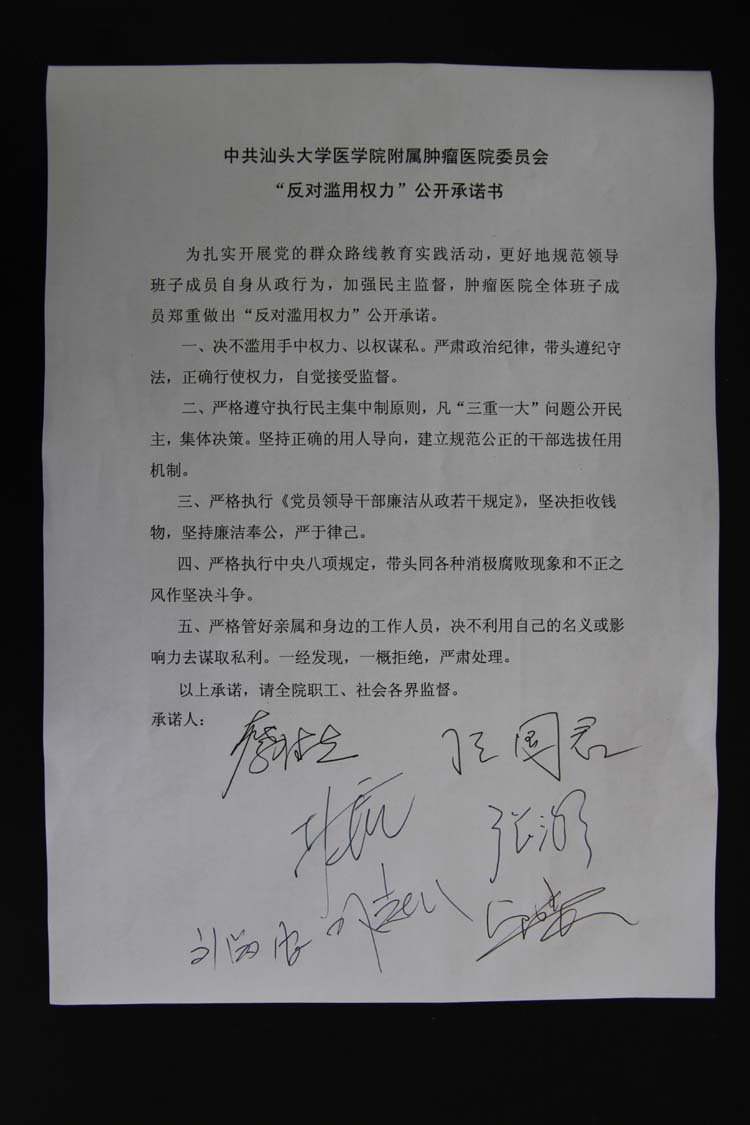 中共汕头大学医学院附属肿瘤医院委员会
“反对滥用权力”公开承诺书
为扎实开展党的群众路线教育实践活动，更好地规范领导
班子成员自身从政行为，加强民主监督，肿瘤医院全体班子成
员郑重做出“反对滥用权力”公开承诺。
一、决不滥用手中权力、以权谋私。严肃政治纪律，带头遵纪守
法，正确行使权力，自觉接受监督。
二、严格遵守执行民主集中制原则，凡“三重一大”问题公开民
主，集体决策。坚持正确的用人导向，建立规范公正的干部选拔任用
机制。
三、严格执行《党员领导干部廉洁从政若干规定》，坚决拒收钱
物，坚持廉洁奉公，严于律己。
四、严格执行中央八项规定，带头同各种消极腐败现象和不正之
风作坚决斗争。
五、严格管好亲属和身边的工作人员，决不利用自己的名义或影
响力去谋取私利。一经发现，一概拒绝，严肃处理。
以上承诺，请全院职工、社会各界监督。
承诺人：